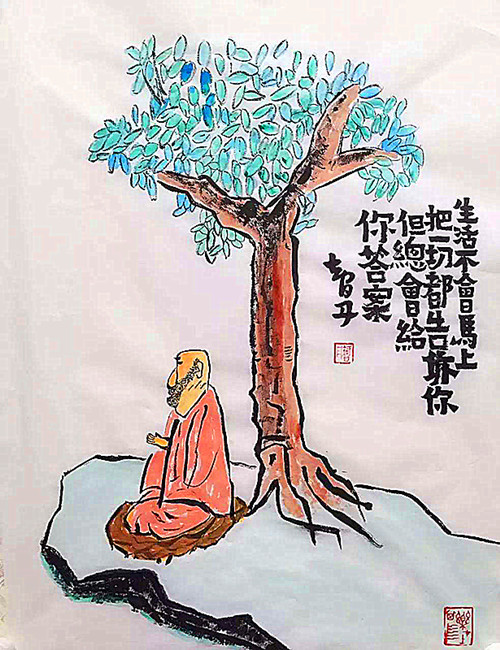 生活不會馬上
把一切都告訴你
但總會給
你答案